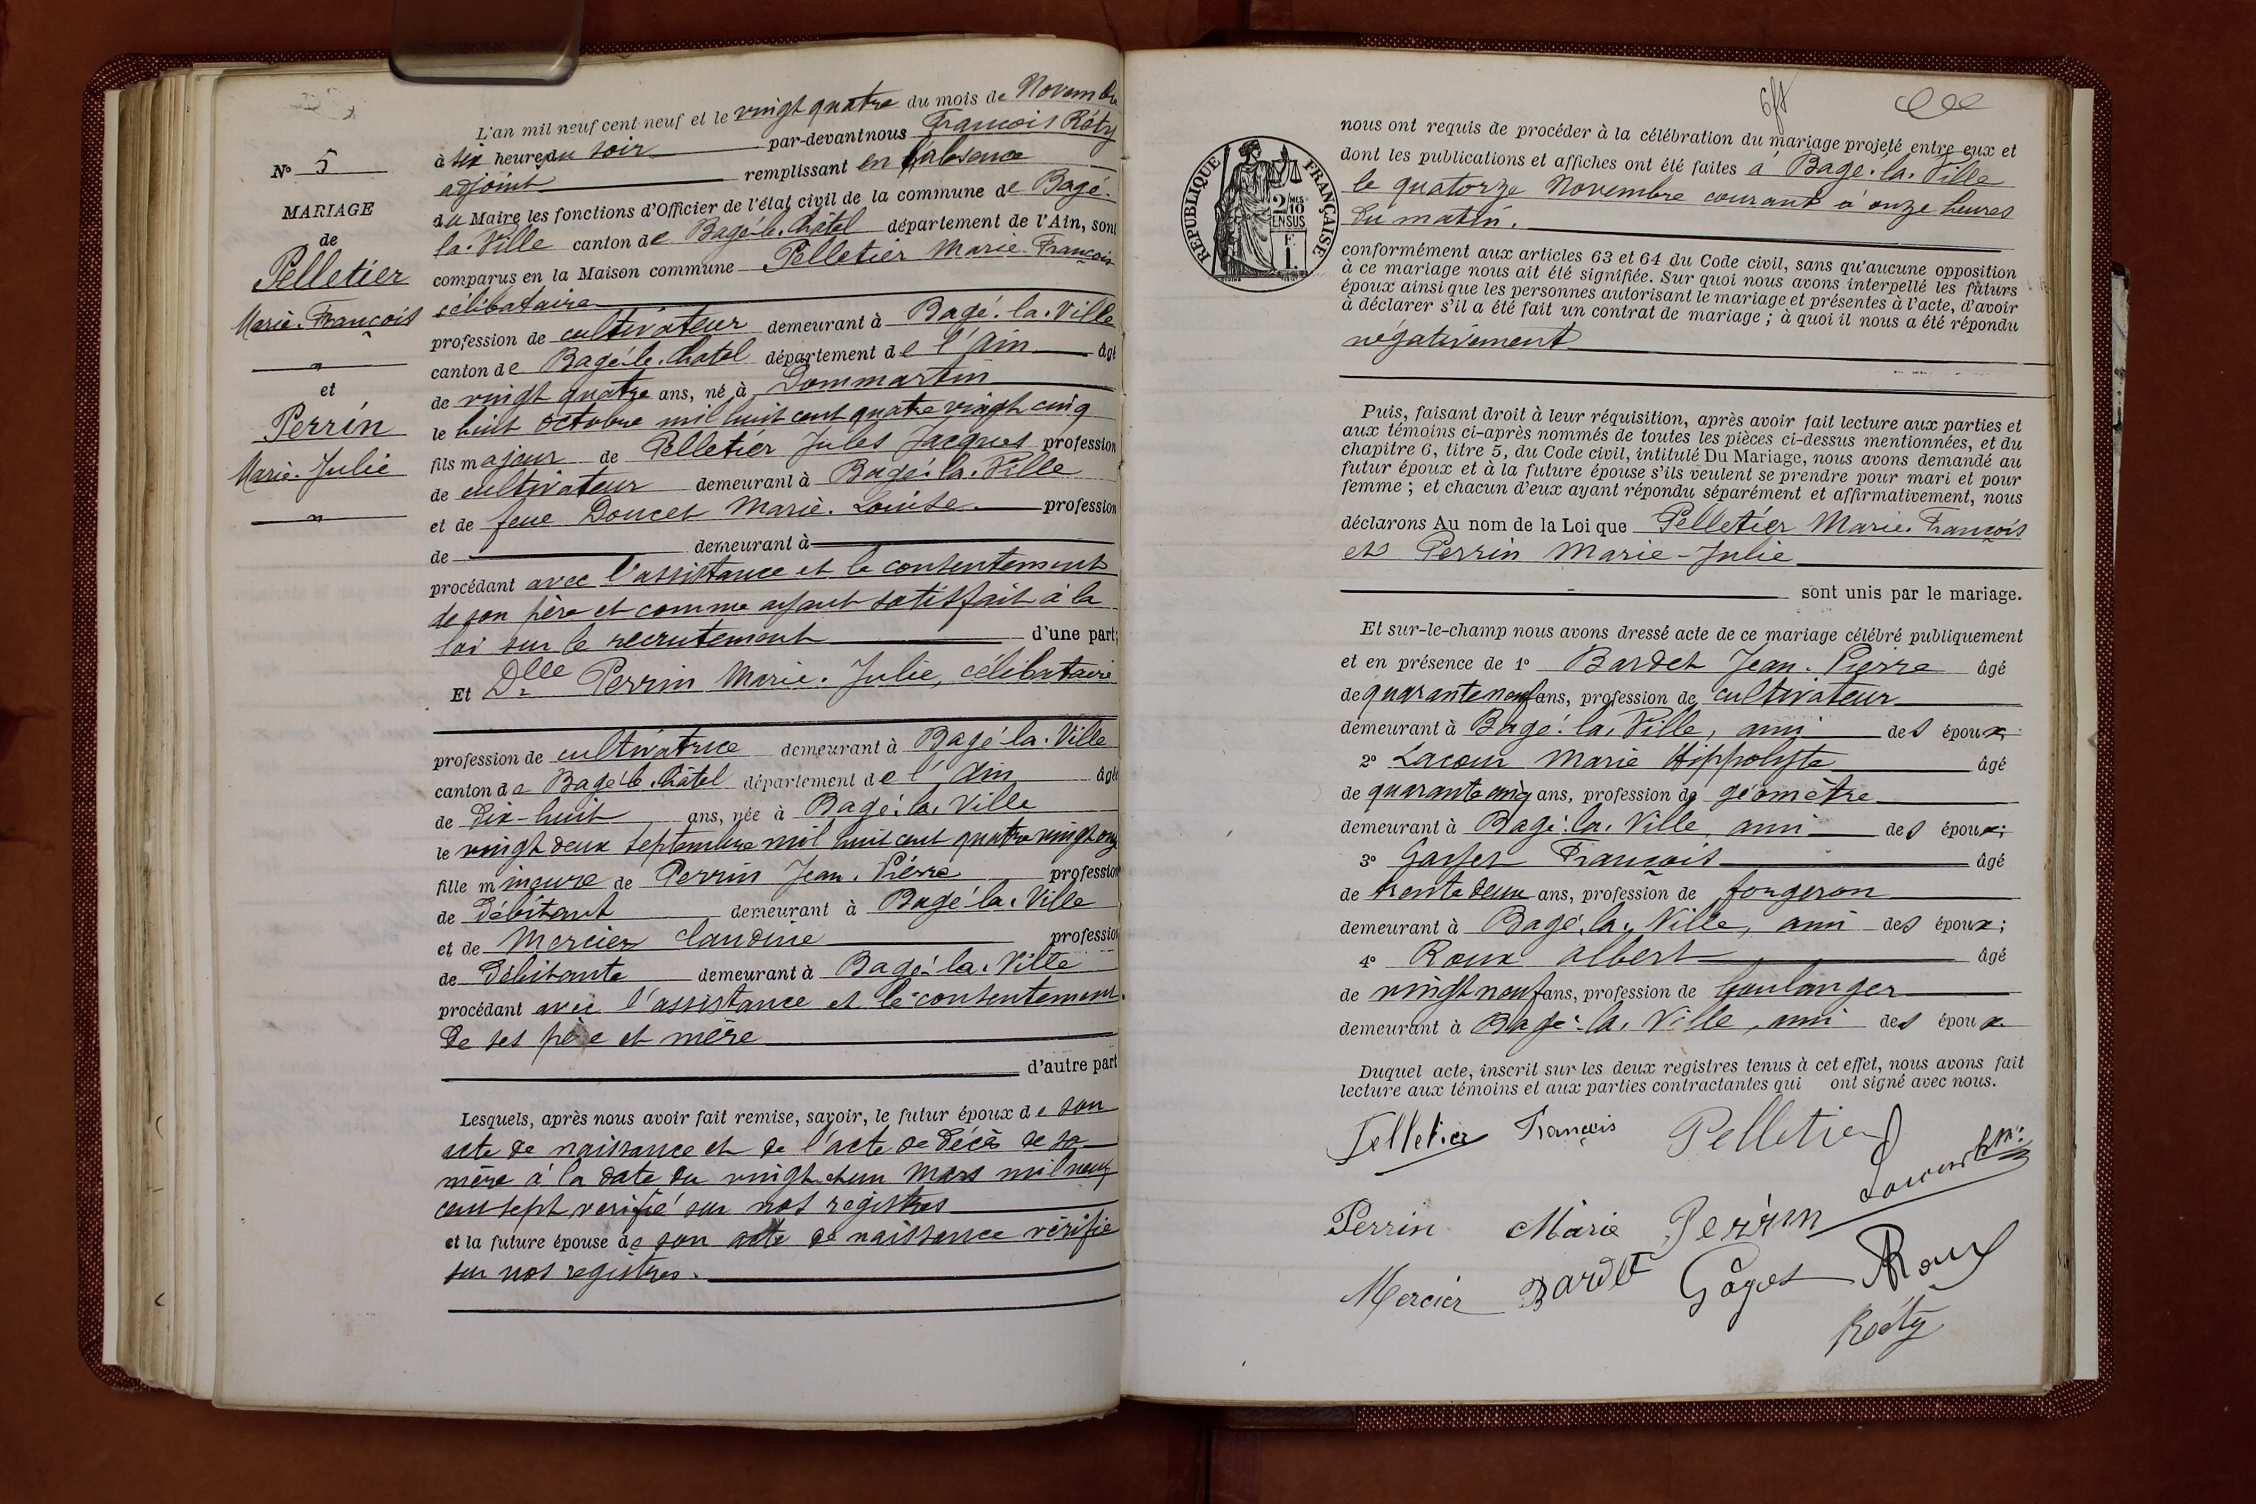 L'an mil neuf cent neuf et le vingt quatre du mois de Novembre
à six heures du soir par-devant nous François Réty
adjoint remplissant en l'absence
du Maire les fonctions d'Officier de l'état civil de la commune de Bagé-
la-Ville canton de Bagé-le-Châtel département de l'Ain, sont
comparus en la Maison commune Pelletier Marie-François
célibataire
profession de cultivateur demeurant à Bagé-la-Ville
canton de Bagé-le-Chatel département de l'Ain âgé
de vingt quatre ans, né à Dommartin
le huit octobre mil huit cent quatre vingt cinq
fils majeur de Pelletier Jules Jacques profession
de cultivateur demeurant à Bagé-la-Ville
et de feue Doucet Marie-Louise profession
de demeurant à
procédant avec l'assistance et le consentement
de son père et comme ayant satisfait à la
loi sur le recrutement d'une part;
Et Dlle Perrin Marie-Julie, célibataire
profession de cultivatrice demeurant à Bagé-la-Ville
canton de Bagé-le-Châtel département de l'Ain âgée
de dix-huit ans, née à Bagé-la-Ville
le vingt deux septembre mil huit cent quatre vingt onze
fille mineure de Perrin Jean-Pierre profession
de débitant demeurant à Bagé-la-Ville
et de Mercier Claudine profession
de débitante demeurant à Bagé-la-Ville
procédant avec l'assistance et le consentement
de ses père et mère
d'autre part
Lesquels, après nous avoir fait remise, savoir, le futur époux de son
acte de naissance et de l'acte de décès de sa
mère à la date du vingt et un Mars mil neuf
cent sept vérifié sur nos registres
et la future épouse de son acte de naissance vérifié
sur nos registres.
N° 5
MARIAGE
de
Pelletier
Marie-François
et
Perrin
Marie-Julie
RÉPUBLIQUE FRANÇAISE
2/10 MES EN SUS
F. 1.
nous ont requis de procéder à la célébration du mariage projeté entre eux et
dont les publications et affiches ont été faites à Bagé-la-Ville
le quatorze Novembre courant à onze heures
du matin.
conformément aux articles 63 et 64 du Code civil, sans qu'aucune opposition
à ce mariage nous ait été signifiée. Sur quoi nous avons interpellé les futurs
époux ainsi que les personnes autorisant le mariage et présentes à l'acte, d'avoir
à déclarer s'il a été fait un contrat de mariage ; à quoi il nous a été répondu
négativement
Puis, faisant droit à leur réquisition, après avoir fait lecture aux parties et
aux témoins ci-après nommés de toutes les pièces ci-dessus mentionnées, et du
chapitre 6, titre 5, du Code civil, intitulé Du Mariage, nous avons demandé au
futur époux et à la future épouse s'ils veulent se prendre pour mari et pour
femme ; et chacun d'eux ayant répondu séparément et affirmativement, nous
déclarons Au nom de la Loi que Pelletier Marie-François
et Perrin Marie-Julie
sont unis par le mariage.
Et sur-le-champ nous avons dressé acte de ce mariage célébré publiquement
et en présence de 1° Bardet Jean-Pierre âgé
de quarante neuf ans, profession de cultivateur
demeurant à Bagé-la-Ville, ami des époux;
2° Lacour Marie Hippolyte âgé
de quarante cinq ans, profession de géomètre
demeurant à Bagé-la-Ville, ami des époux;
3° François âgé
de trente deux ans, profession de forgeron
demeurant à Bagé-la-Ville, ami des époux;
4° Roux Albert âgé
de vingt neuf ans, profession de boulanger
demeurant à Bagé-la-Ville, ami des époux
Duquel acte, inscrit sur les deux registres tenus à cet effet, nous avons fait
lecture aux témoins et aux parties contractantes qui ont signé avec nous.
Pelletier François Pelletier
Perrin Marie Perrin
Mercier Bardet Roux
Réty